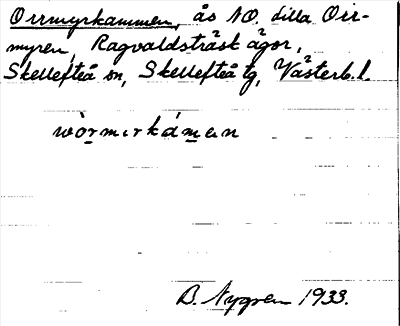 Orrmyrkammen, ås NO. lilla Orr-
myren, Ragvaldsträsk ägor,
Skellefteå sn, Skellefteå tg, Västerb. l.
wòrmırkámen
B. Nygren 1933.